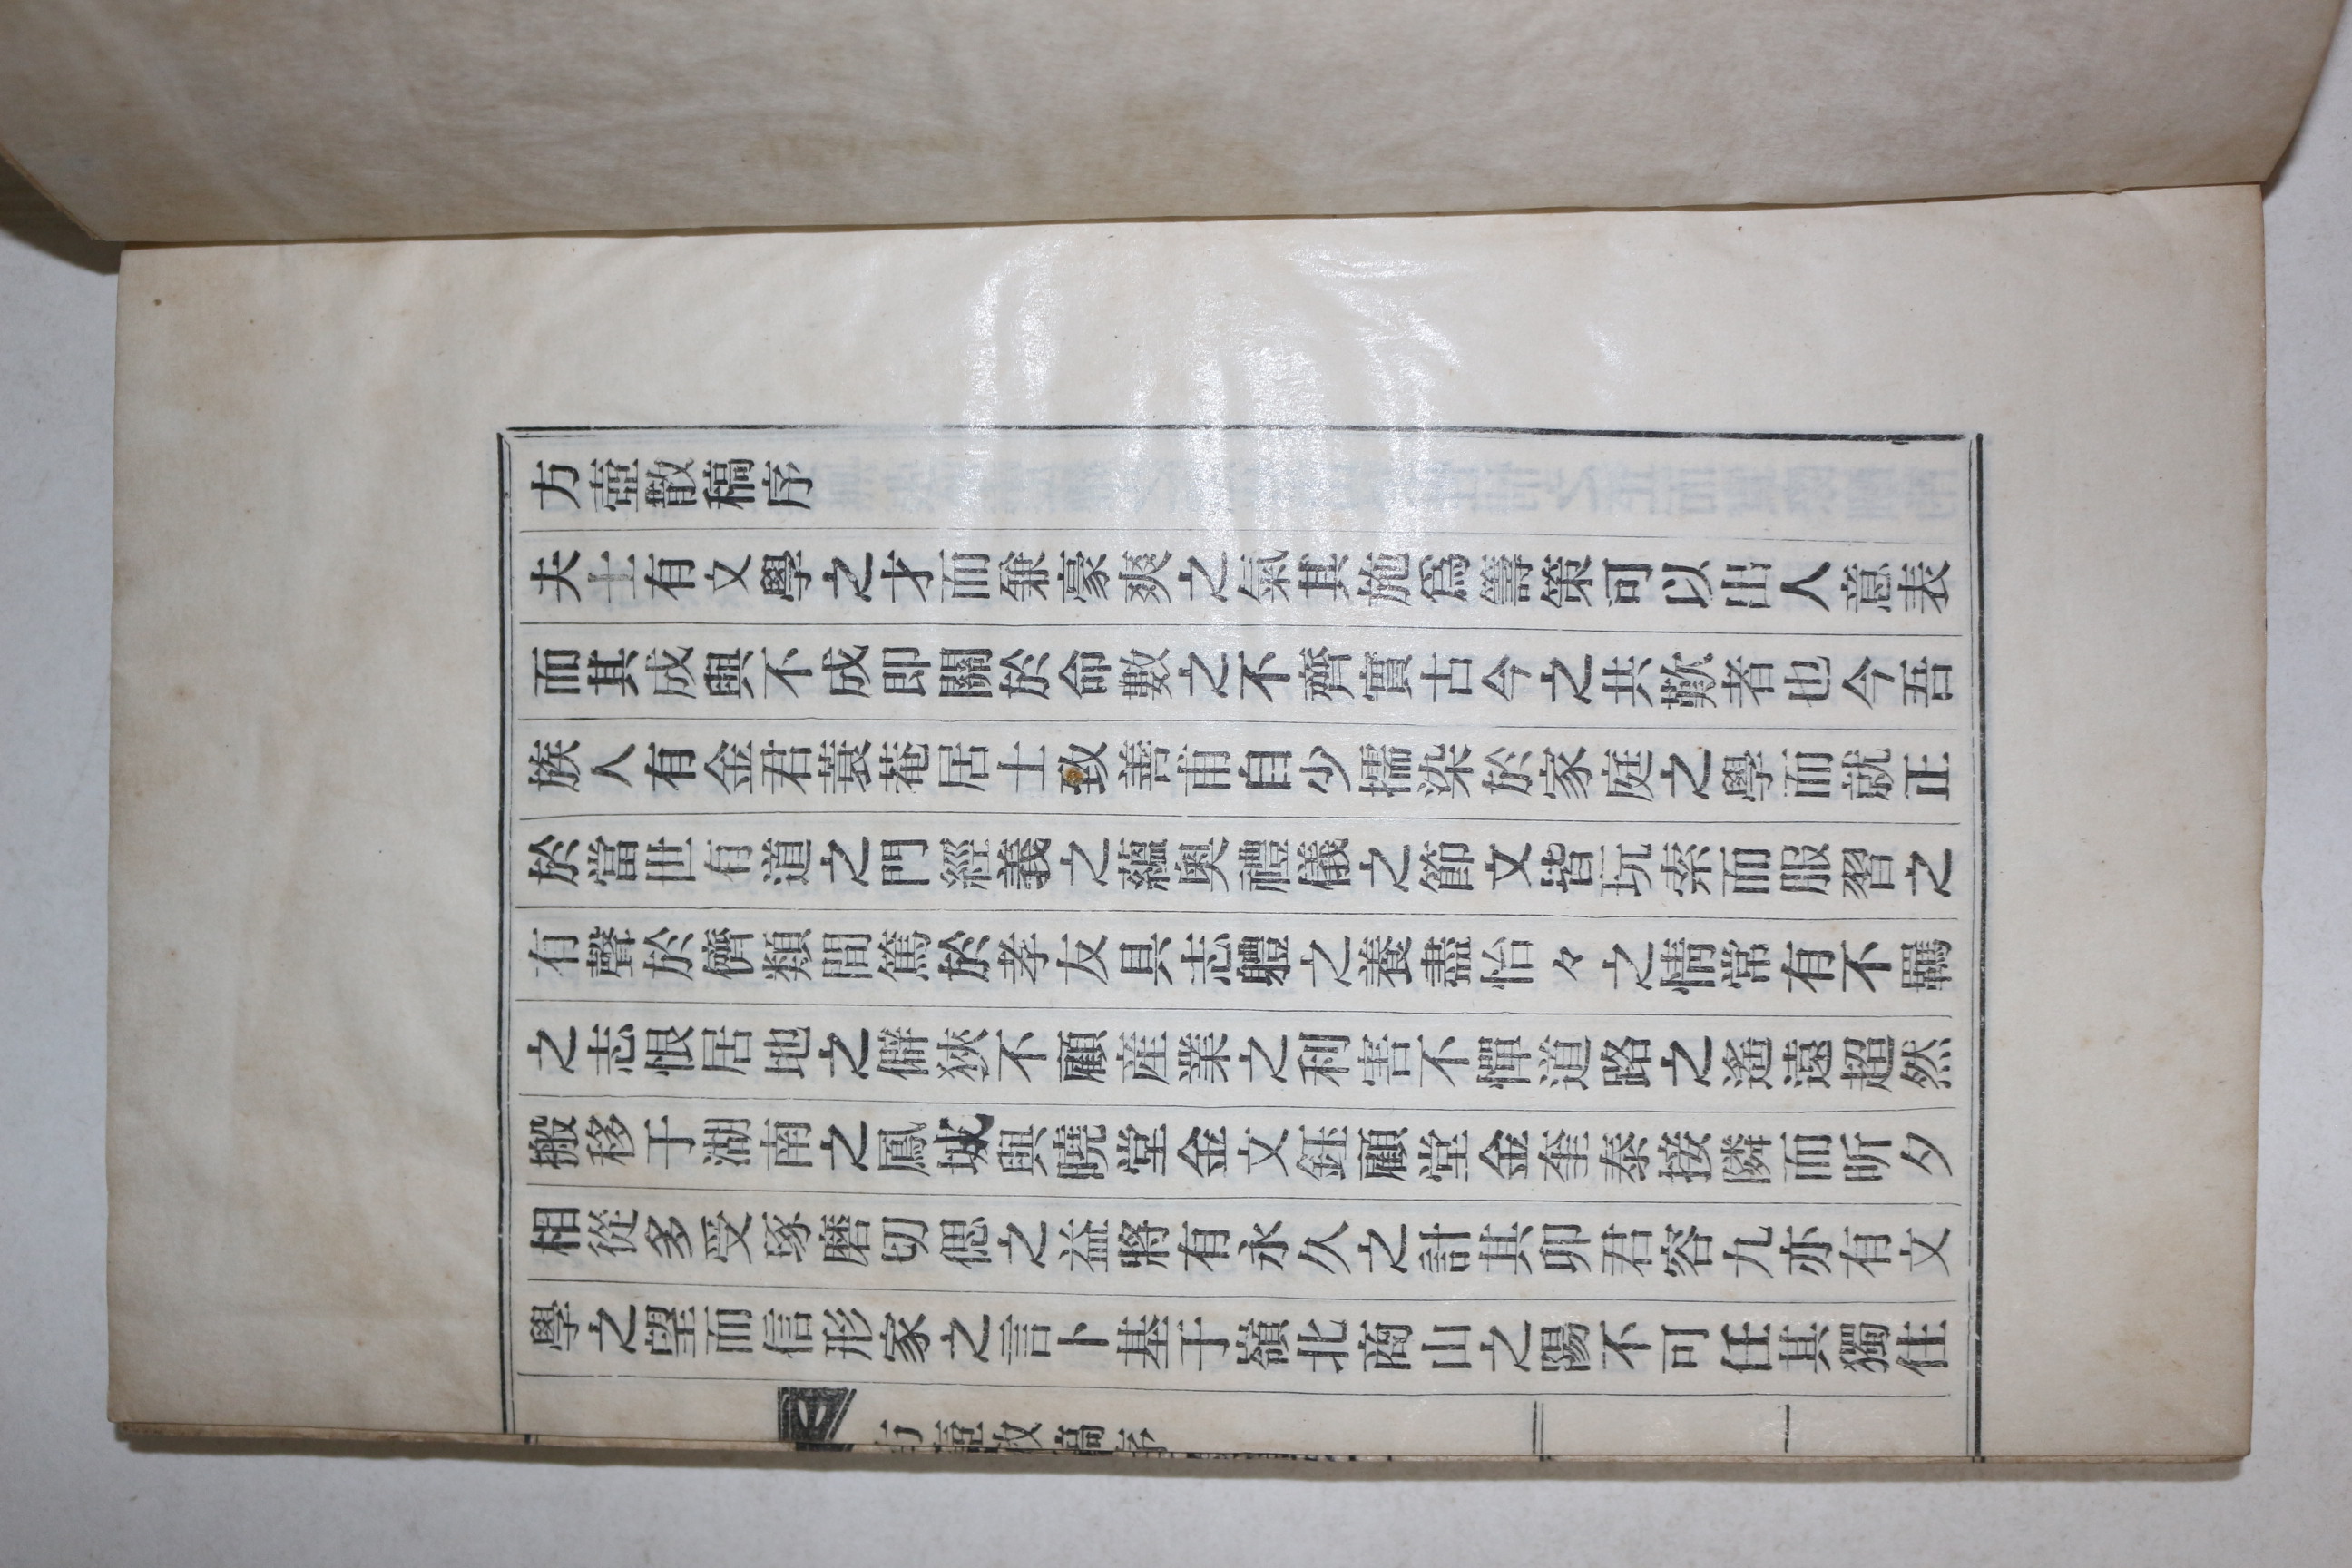 方壺散稿序
夫士有文學之才而兼豪爽之氣其施爲籌策可以出人意表
而其成與不成即關於命數之不齊實古今之共歎者也今吾
族人有金君蓑菴居士致善甫自少擩染於家庭之學而就正
於當世有道之門經義之蘊奧禮儀之節文皆玩索而服習之
有聲於儕類間篤於孝友具志軆之養盡怡々之情常有不羈
之志恨居地之僻狹不顧産業之利害不憚道路之遙遠超然
搬移于湖南之鳳城與曉堂金文鈺顧堂金奎泰接隣而昕夕
相從多受琢磨切偲之益將有永久之計其卯君容九亦有文
學之望而信形家之言卜基于嶺北商山之陽不可任其獨住
方壺散稿序
一